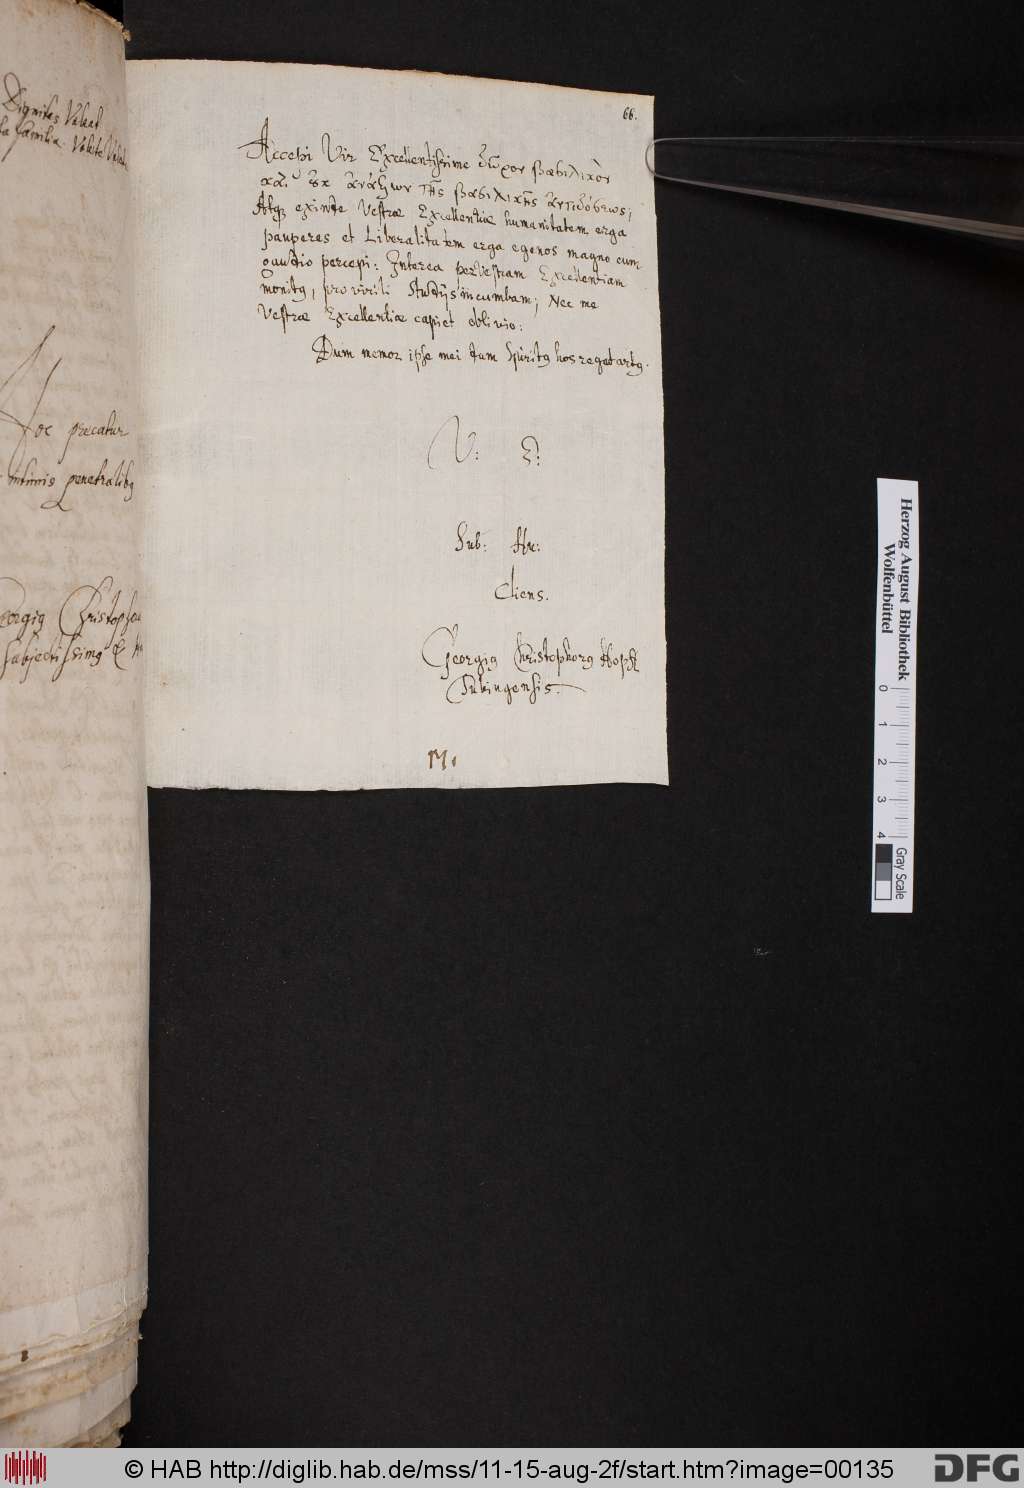 Dignitas Valeat
familia. Valete Vale
Hoc precatur
intimis penetralibꝫ
Georgiꝰ Christophorꝰ
subjectissimꝰ &
66.
Accepi Vir Excellentissime δῶρον βασιλικὸν
καὶ ἐκ ἀνάξιον τῆς βασιλικῆς ἀντιδόσεως,
Atqꝫ exinde Vestræ Excellentiæ humanitatem erga
pauperes et Liberalitatem erga egenos magno cum
gaudio percepi: Interea per Vestram Excellentiam
monitꝰ, pro virili studijs incumbam; Nec me
Vestræ Excellentiæ capiet oblivio:
Dum memor ipse mei dum spiritꝰ hos reget artꝰ.
V: E:
Sub: Hu:
Cliens.
Georgiꝰ Christophorꝰ Hopff
Tubingensis.
M.
Herzog August Bibliothek
Wolfenbüttel
0 1 2 3 4
Gray Scale
© HAB http://diglib.hab.de/mss/11-15-aug-2f/start.htm?image=00135
DFG